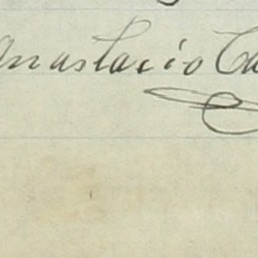 Anastacio Ca